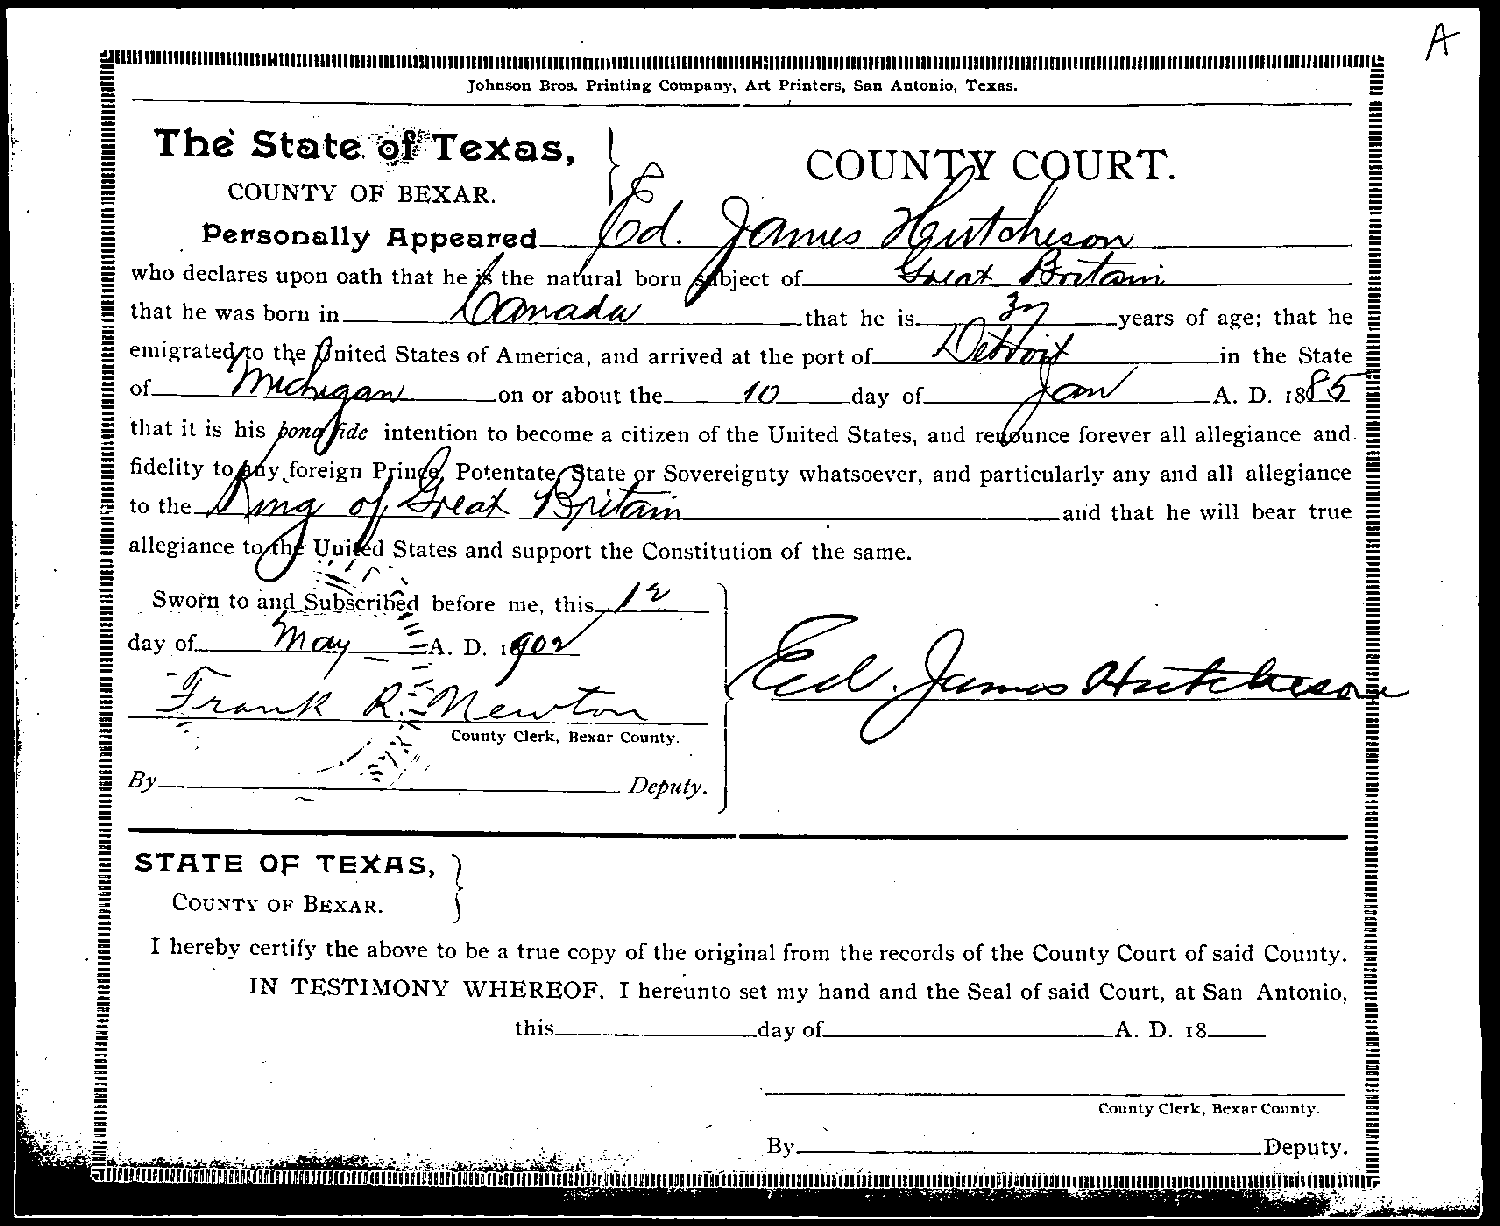 A
Johnson Bros. Printing Company, Art Printers, San Antonio, Texas.
The State of Texas, } COUNTY COURT.
COUNTY OF BEXAR.
Personally Appeared Ed. James Hutcheson
who declares upon oath that he is the natural born subject of Great Britain
that he was born in Canada that he is years of age; that he
emigrated to the United States of America, and arrived at the port of Detroit in the State
of Michigan on or about the 10 day of Jan A. D. 1885
that it is his bona fide intention to become a citizen of the United States, and renounce forever all allegiance and
fidelity to any foreign Prince, Potentate, State or Sovereignty whatsoever, and particularly any and all allegiance
to the King of Great Britain and that he will bear true
allegiance to the United States and support the Constitution of the same.
Sworn to and Subscribed before me, this 12
day of May A. D. 1902
Ed. James Hutcheson
Frank R. Newton
County Clerk, Bexar County.
By Deputy.
STATE OF TEXAS, }
COUNTY OF BEXAR.
I hereby certify the above to be a true copy of the original from the records of the County Court of said County.
IN TESTIMONY WHEREOF, I hereunto set my hand and the Seal of said Court, at San Antonio,
this day of A. D. 18
County Clerk, Bexar County.
By Deputy.